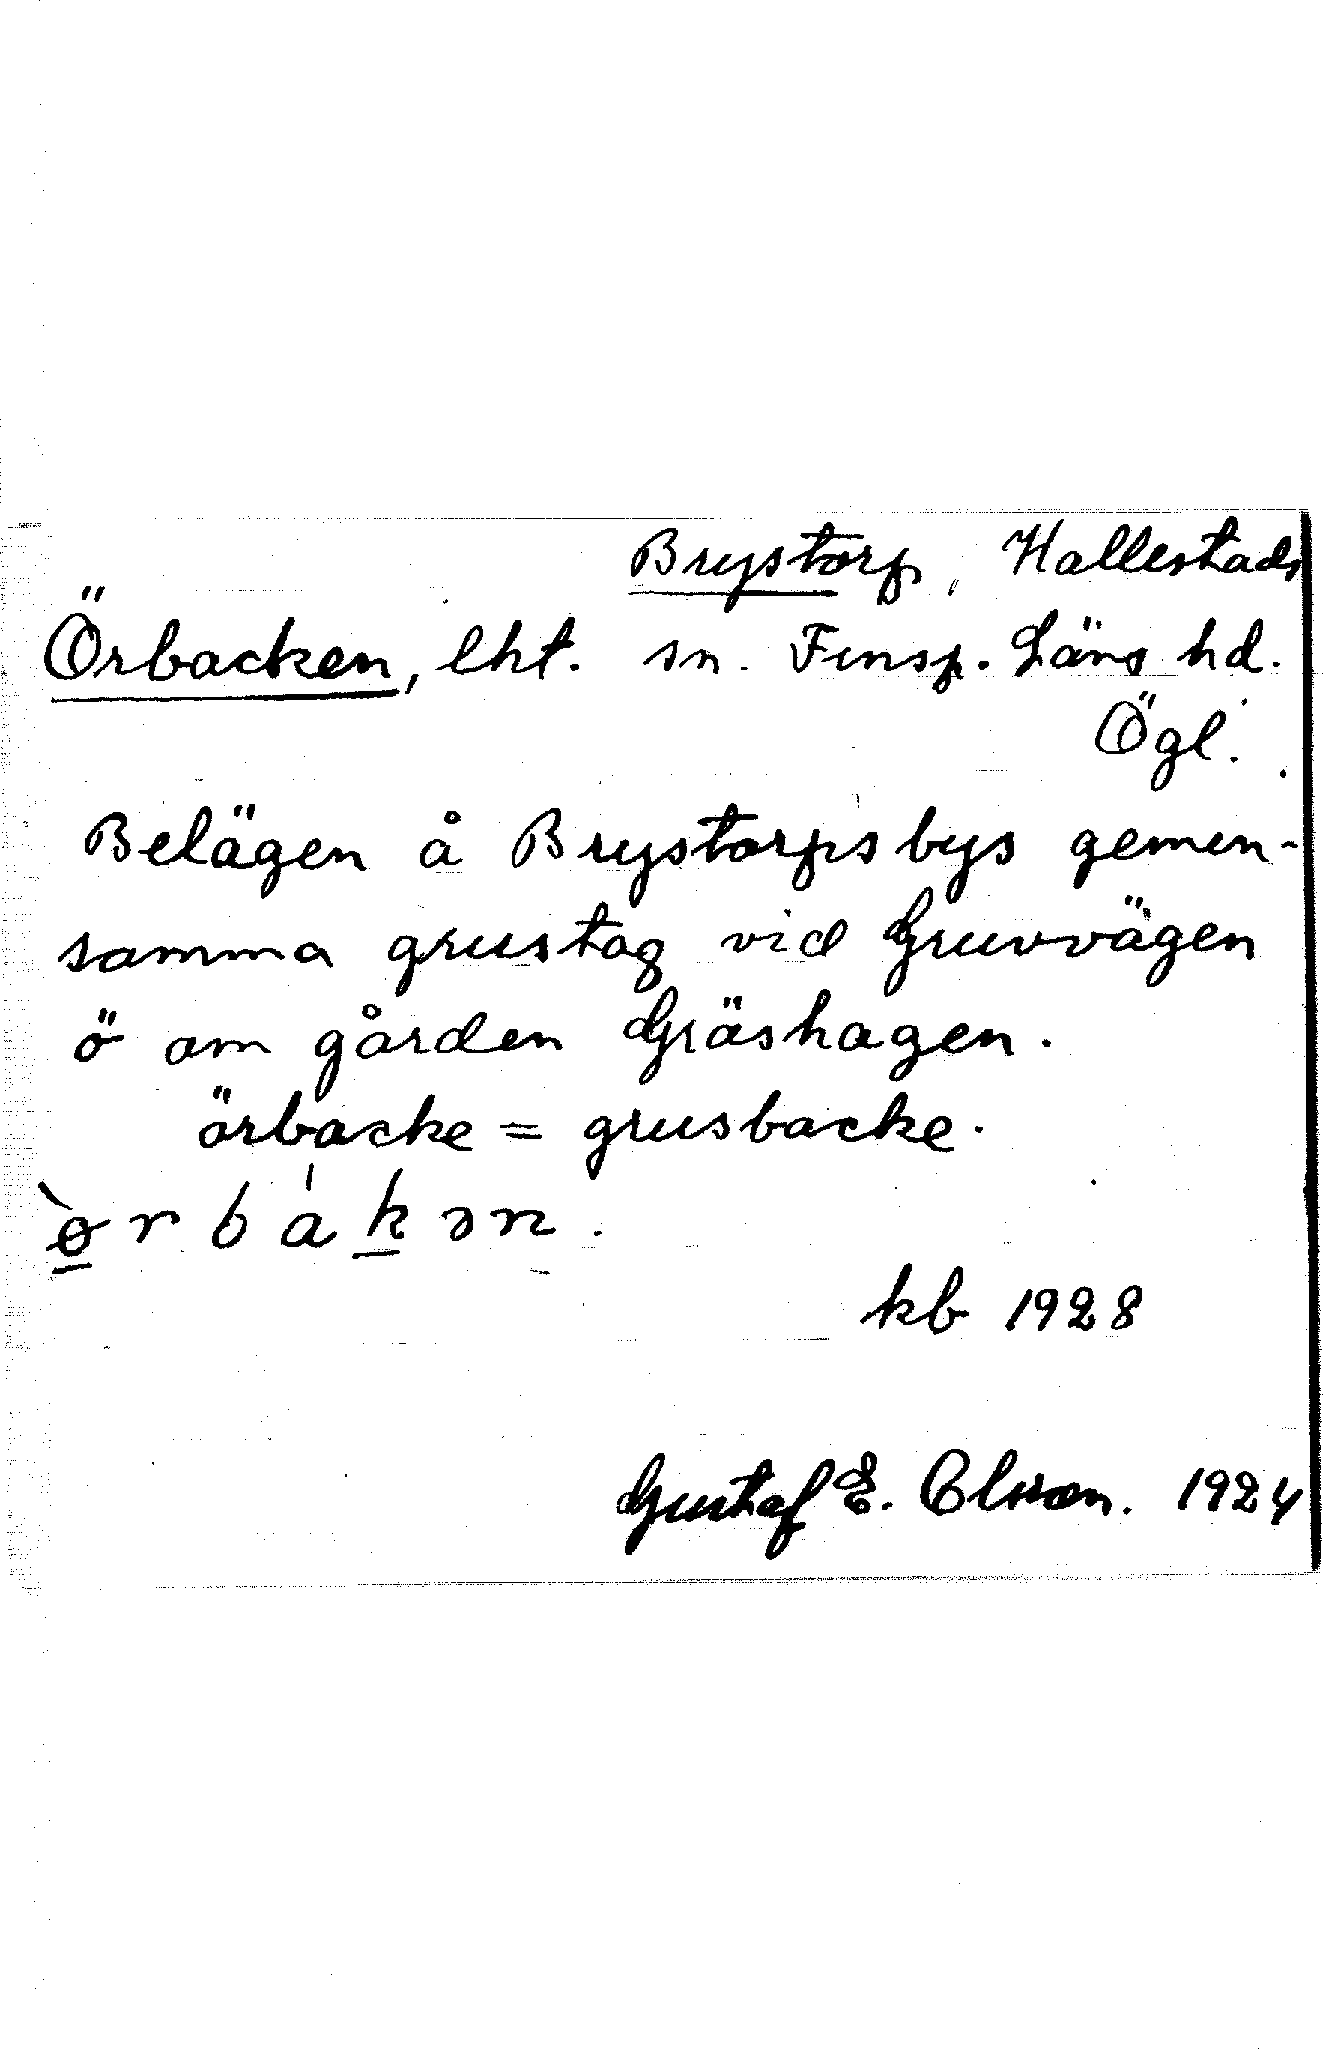 Brystorp, Hallestads
Örbacken, lht. sn. Finsp. Läns hd.
Ögl.
Belägen å Brystorps bys gemen-
samma grustag vid Gruvvägen
ö om gården Gräshagen.
örbacke = grusbacke.
ø̀rbákən.
kb 1928
Gustaf E. Olsson. 1924